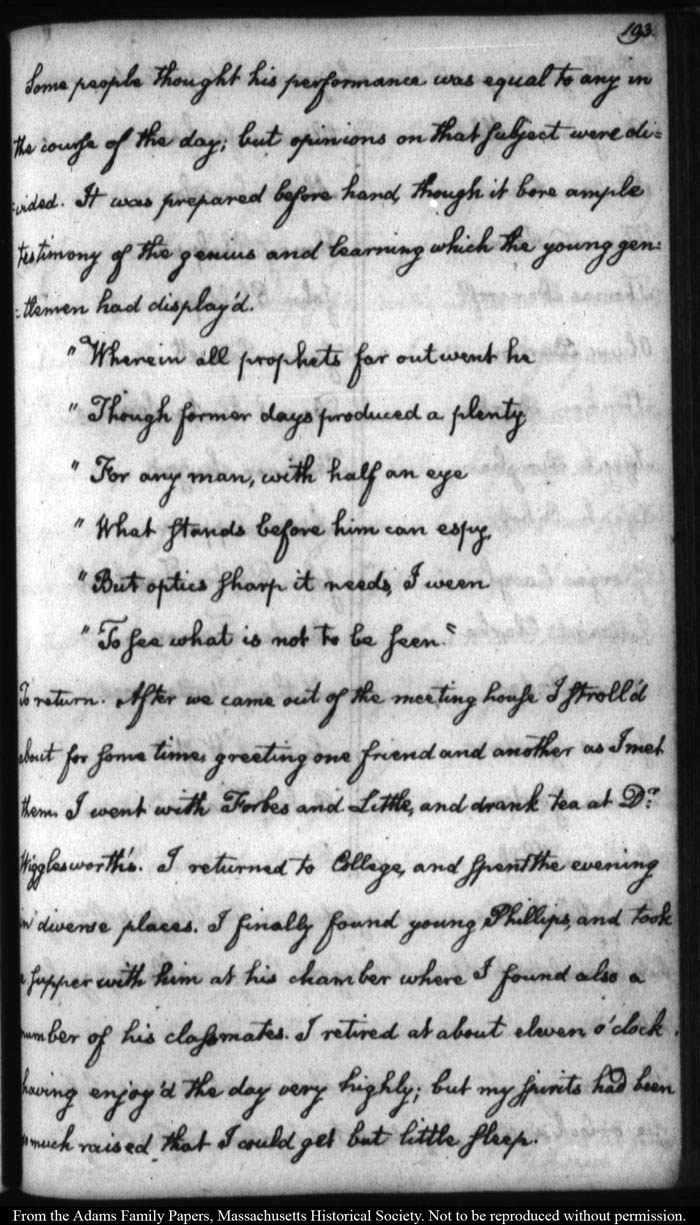 193.
Some people thought his performance was equal to any in
the course of the day; but opinions on that subject were di=
=vided. It was prepared before hand, though it bore ample
testimony of the genius and learning which the young gen=
=tlemen had display'd.
"Wherein all prophets far outwent he
"Though former days produced a plenty
"For any man, with half an eye
"What stands before him can espy,
"But optics sharp it needs, I ween
"To see what is not to be seen."
To return. After we came out of the meeting house I stroll'd
about for some time, greeting one friend and another as I met
them. I went with Forbes and Little, and drank tea at Dr.
Wigglesworth's. I returned to College, and spent the evening
in diverse places. I finally found young Phillips, and took
a supper with him at his chamber where I found also a
number of his classmates. I retired at about eleven o'clock.
having enjoy'd the day very highly; but my spirits had been
so much raised that I could get but little sleep.
From the Adams Family Papers, Massachusetts Historical Society. Not to be reproduced without permission.